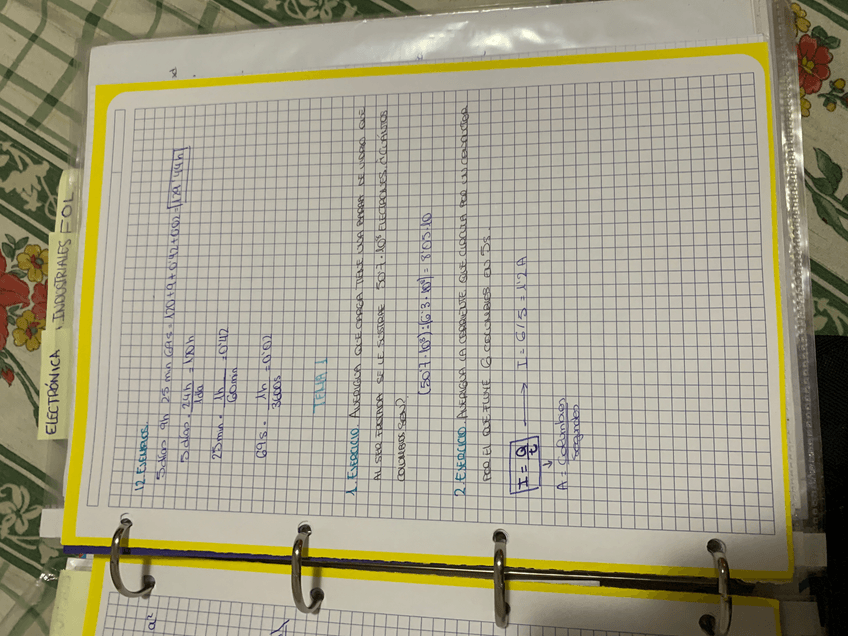 ELECTRÓNICA
INDUSTRIALES
FOL
12. EJEMPLO.
5 días 9h 25 mn 69s = 120+9+0'42+0'02 = 129'44h
5 días · 24h / 1día = 120h
25 mn · 1h / 60mn = 0'42
69 s · 1h / 3600s = 0'02
TEMA 1
1. EJERCICIO. AVERIGUA QUE CARGA TIENE UNA BARRA DE VIDRIO QUE
AL SER FROTADA SE LE SUSTRAE 50'7·10¹⁸ ELECTRONES. ¿CUÁNTOS
COLUMBIOS SON?
(50'7·10¹⁸):(6'3·10¹⁸) = 8'05·10
2. EJERCICIO. AVERIGUA LA CORRIENTE QUE CIRCULA POR UN CONDUCTOR
POR EL QUE FLUYE 6 COLUMBIOS EN 5s.
I = Q / t → I = 6/5 = 1'2 A
↓
A = Columbios / segundos
a²